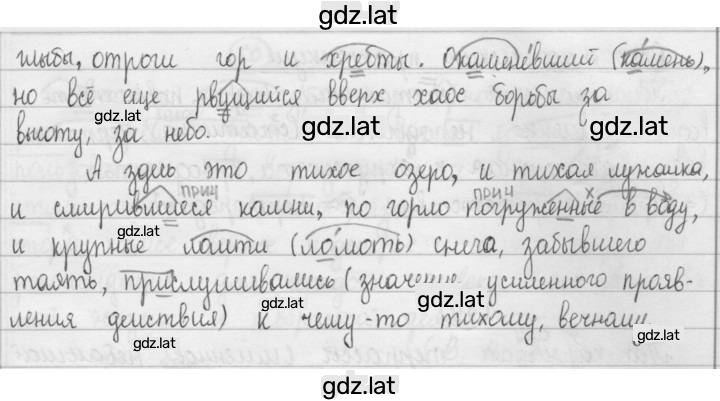 gdz.lat
глыбы, отроги гор и хребты. Окаменевший (камень),
но всё еще рвущийся вверх хаос борьбы за
gdz.lat gdz.lat
высоту, за небо.
А здесь это тихое озеро, и тихая лужайка,
прич прич х
и смирившиеся камни, по горло погруженные в воду,
gdz.lat gdz.lat
и крупные ломти (ломоть) снега, забывшего
таять, прислушивались (значение усиленного прояв-
gdz.lat gdz.lat
ления действия) к чему-то тихому, вечному.
gdz.lat
gdz.lat